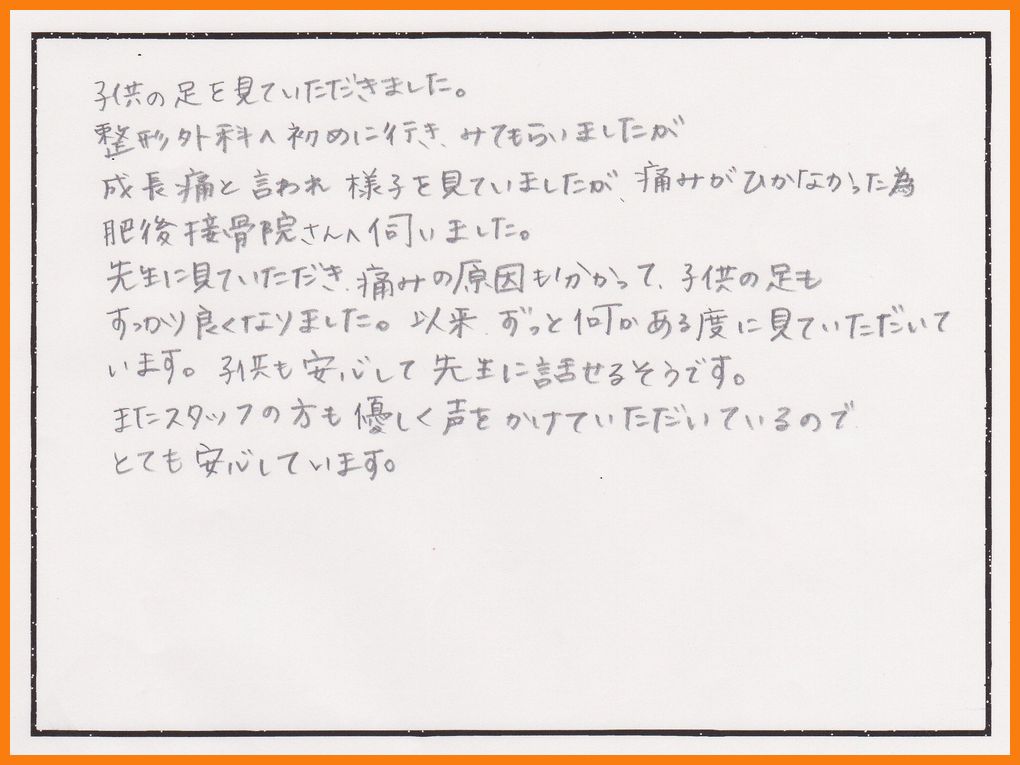 子供の足を見ていただきました。
整形外科へ初めに行き、みてもらいましたが
成長痛と言われ 様子を見ていましたが、痛みがひかなかった為
肥後接骨院さんへ伺いました。
先生に見ていただき、痛みの原因も分かって、子供の足も
すっかり良くなりました。以来、ずっと何かある度に見ていただいて
います。子供も安心して先生に話せるそうです。
またスタッフの方も優しく声をかけていただいているので
とても安心しています。